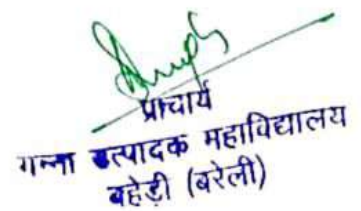 प्राचार्य
गन्ना उत्पादक महाविद्यालय
बहेड़ी (बरेली)